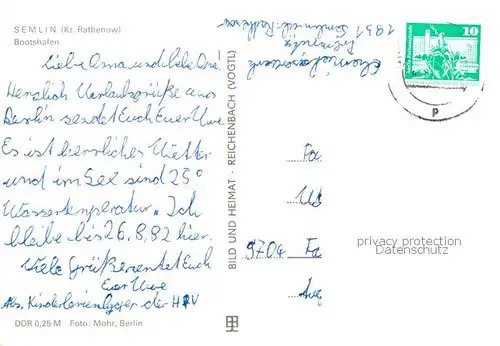 SEMLIN (Kr. Rathenow)
Bootshafen
Liebe Oma und lebe Opa!
Herzlich Urlaubsgrüße aus
Berlin sendet Euch Euer Uwe
Es ist herrliches Wetter
und im See sind 25°
Wassertemperatur. Ich
bleibe bis 26.8.82 hier.
Viele Grüße sendet Euch
Euer Uwe
Abs. Kinderferienlager der
DDR 0,25 M Foto: Mohr, Berlin
BILD UND HEIMAT · REICHENBACH (VOGTL)
1831
10
P
Fa
9704
privacy protection
Datenschutz